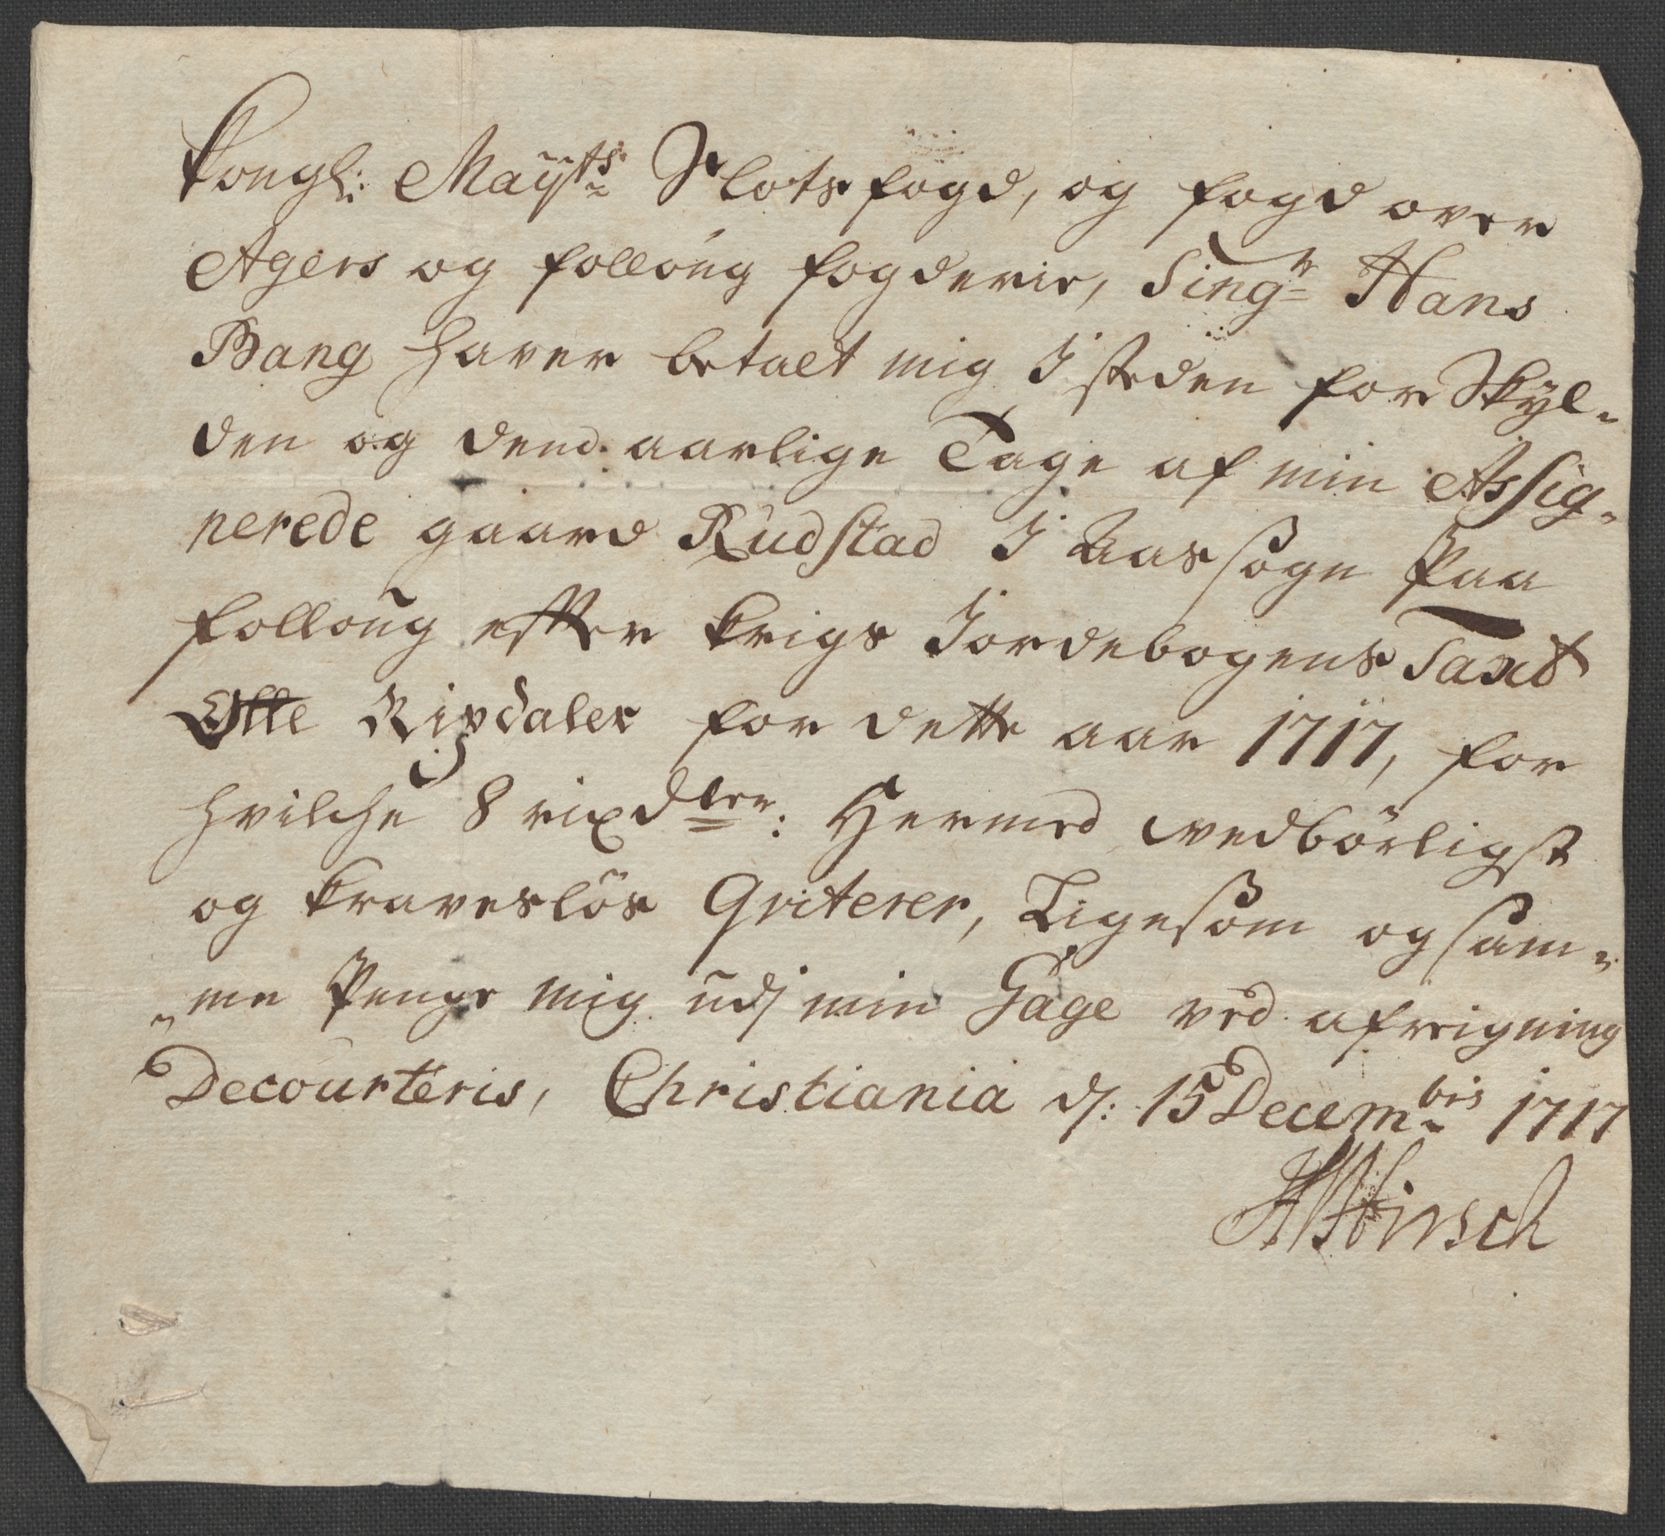 Kongl: Mayts Slotsfogd, og fogd over
Agers og Folloug fogderie, Singr Hans
Bang haver betalt mig I steden for Skyl-
den og dend aarlige Tage af min Assig-
nerede gaard Rudstad I Aas sogn paa
Folloug efter krigs Jordebogens Taxt
Otte Rixdaler for dette aar 1717, for
hvilche 8 rixdler: Hermed vedbörligst
og kraveslös Qviterer, Ligesom og sam-
me Penge mig udj min Gage ved afreigning
Decourteris, Christiania d: 15 Decembris 1717
Hirsch